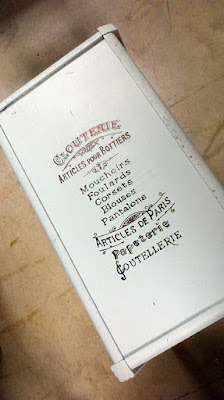 CLOUTERIE
ARTICLES POUR BOTTIERS
Mouchoirs
Foulards
Corsets
Blouses
Pantalons
ARTICLES DE PARIS
Papeterie
COUTELLERIE